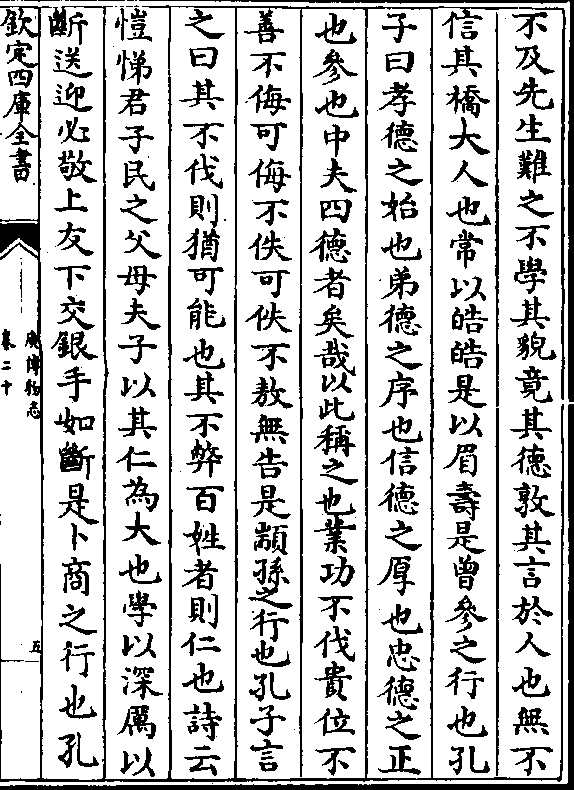 不及先生難之不學其貌竟其德敦其言於人也無不
信其橋大人也常以皓皓是以眉壽是曾參之行也孔
子曰孝德之始也弟德之序也信德之厚也忠德之正
也參也中夫四德者矣哉以此稱之也業功不伐貴位不
善不侮可侮不佚可佚不敖無告是顓孫之行也孔子言
之曰其不伐則猶可能也其不弊百姓者則仁也詩云
愷悌君子民之父母夫子以其仁為大也學以深厲以
斷送迎必敬上友下交銀手如斷是卜商之行也孔
欽定四庫全書
廣博物志
卷二十
五